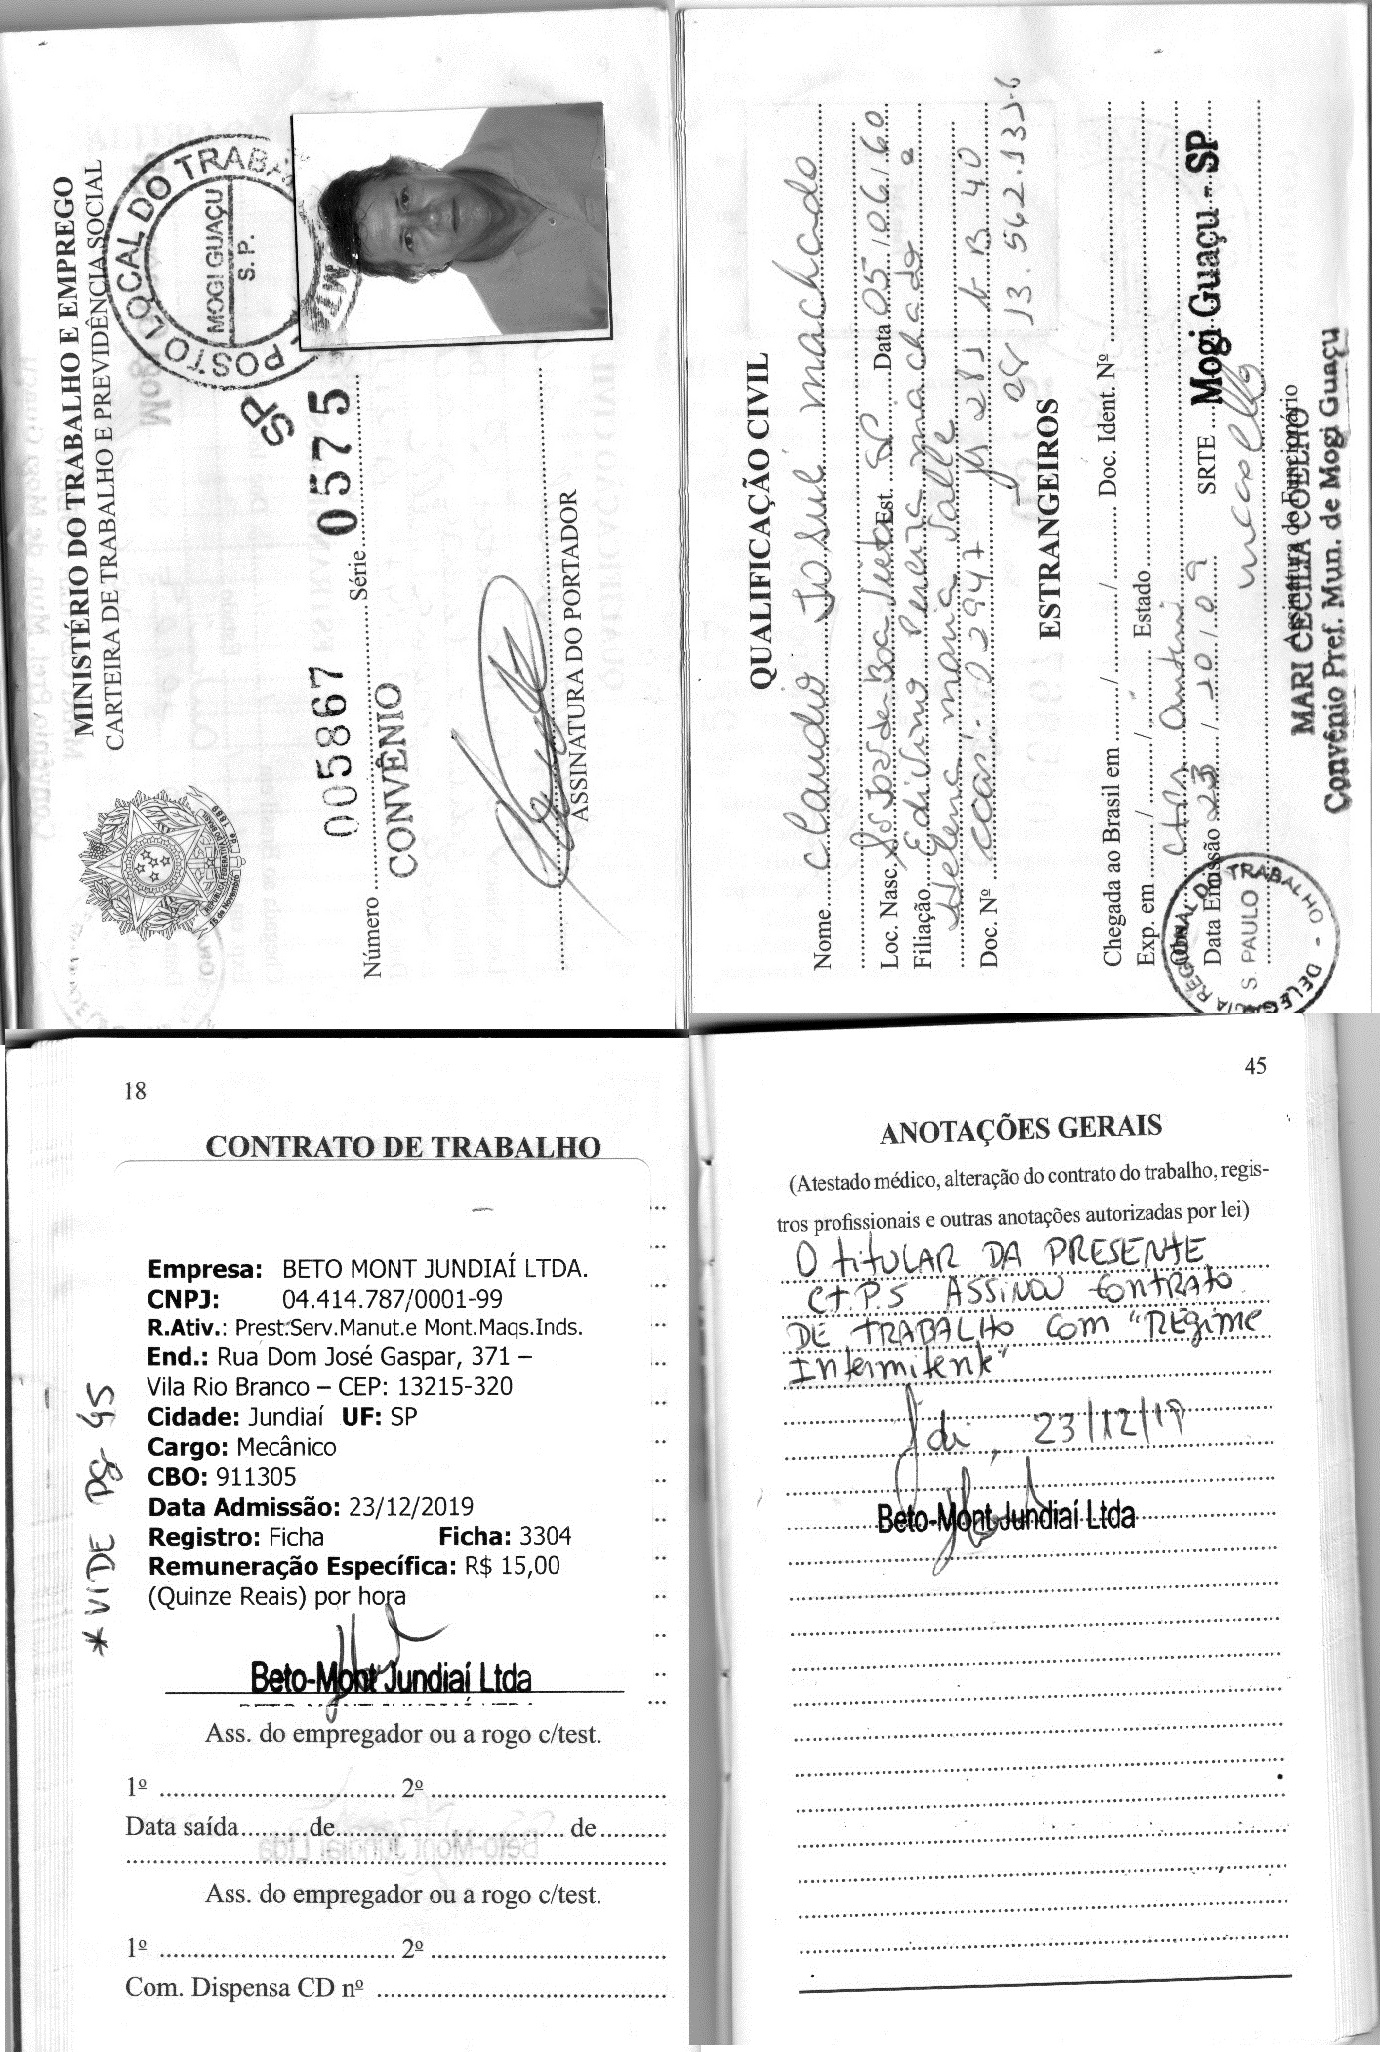 MINISTÉRIO DO TRABALHO E EMPREGO
CARTEIRA DE TRABALHO E PREVIDÊNCIA SOCIAL
POSTO LOCAL DO TRABA
MOGI GUAÇU
S. P.
SP
REPÚBLICA FEDERATIVA DO BRASIL
15 de Novembro de 1889
005867
0575
Número Série
CONVÊNIO
ASSINATURA DO PORTADOR
QUALIFICAÇÃO CIVIL
Nome Claudio Josué machado
Loc. Nasc. Boa Est. SP Data 05/06/60
Filiação Pereira machado e
Helena maria
Doc. Nº
13.562.132-6
ESTRANGEIROS
Chegada ao Brasil em / / Doc. Ident. Nº
Exp. em / / Estado
Obs.
Data Emissão 23/10/09 SRTE Mogi Guaçu - SP
Assinatura do Funcionário
MARI CECILIA COELHO
Convênio Pref. Mun. de Mogi Guaçu
DELEGACIA REGIONAL DO TRABALHO
S. PAULO
18
CONTRATO DE TRABALHO
Empresa: BETO MONT JUNDIAÍ LTDA.
CNPJ: 04.414.787/0001-99
R.Ativ.: Prest.Serv.Manut.e Mont.Maqs.Inds.
End.: Rua Dom José Gaspar, 371 –
Vila Rio Branco – CEP: 13215-320
Cidade: Jundiaí UF: SP
Cargo: Mecânico
CBO: 911305
Data Admissão: 23/12/2019
Registro: Ficha Ficha: 3304
Remuneração Específica: R$ 15,00
(Quinze Reais) por hora
* VIDE PG 45
Beto-Mont Jundiaí Ltda
Ass. do empregador ou a rogo c/test.
1º 2º
Data saída de de
Ass. do empregador ou a rogo c/test.
1º 2º
Com. Dispensa CD nº
45
ANOTAÇÕES GERAIS
(Atestado médico, alteração do contrato do trabalho, regis-
tros profissionais e outras anotações autorizadas por lei)
O TITULAR DA PRESENTE
CT.P.S ASSINOU CONTRATO
DE TRABALHO COM "REGIME
Intermitente"
Jdi, 23/12/19
Beto-Mont Jundiaí Ltda